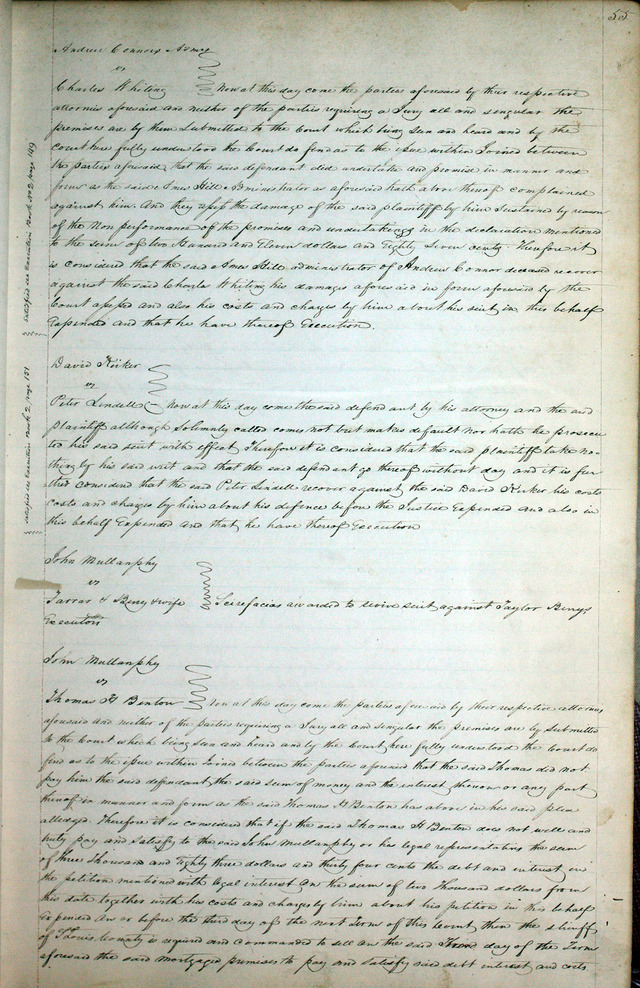 55
Andrew Connors Admr
vs
Charles Whiting Now at this day come the parties aforesaid by their respective
attornies aforesaid and neither of the parties requiring a Jury all and singular the
premises are by them Submitted to the Court which being seen and heard and by the
Court here fully understood the Court do find as to the issue within Joined between
the parties aforesaid that the said defendant did undertake and promise in manner and
form as the said Amos Hill Administrator as aforesaid hath above thereof complained
against him. And they assess the damage of the said plaintiff by him Sustained by reason
of the Non performance of the promises and undertakings in the declaration mentioned
to the sum of two Hundred and Eleven dollars and Eighty Seven cents. Therefore it
is considered that the said Amos Hill administrator of Andrew Connor deceased recover
against the said Charles Whiting his damages aforesaid in form aforesaid by the
Court assessed and also his costs and charges by him about his suit in this behalf
Expended and that he have thereof Execution.
satisfied see Execution Book No 2 page 149
David Kirker
vs
Peter Lindell Now at this day come the said defendant by his attorney and the said
plaintiff although Solemnly called comes not but makes default nor hath he prosecu
ted his said suit with effect Therefore it is considered that the said plaintiff take no-
thing by his said writ and that the said defendant go thereof without day and it is fur
ther considered that the said Peter Lindell recover against the said David Kirker his costs
costs and charges by him about his defence before the Justice Expended and also in
this behalf Expended and that he have thereof Execution
satisfied see Execution Book 2 page 151
John Mullanphy
vs
Farrar & Berry & wife Scirefacias awarded to revive suit against Taylor Berrys
Executors
John Mullanphy
vs
Thomas H Benton Now at this day come the parties aforesaid by their respective attornies
aforesaid and neither of the parties requiring a Jury all and singular the premises are by Submitted
to the Court which being seen and heard and by the Court here fully understood the Court do
find as to the issue within Joined between the parties aforesaid that the said Thomas did not
pay him the said defendant the said sum of money and the interest thereon or any part
thereof in manner and form as the said Thomas H Benton has above in his said plea
alledged. Therefore it is considered that if the said Thomas H Benton does not well and
truly pay and Satisfy to the said John Mullanphy or his legal representatives the sum
of three thousand and Eighty three dollars and thirty four cents the debt and interest in
the petition mentioned with legal interest on the sum of two thousand dollars from
this date together with his costs and charges by him about his petition in this behalf
Expended on or before the third day of the next Term of this Court then the sheriff
of St Louis County is required and commanded to sell on the said day of the Term
aforesaid the said mortgaged premises to pay and satisfy said debt interest and costs